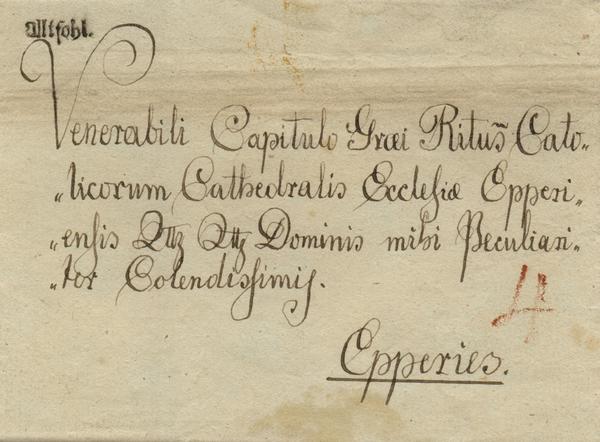 altsohl.
Venerabili Capitulo Græi Ritus Cato-
-licorum Cathedralis Ecclesiæ Epperi-
-ensis Dominis mihi Peculiari-
-ter Colendissimis.
4
Epperies.